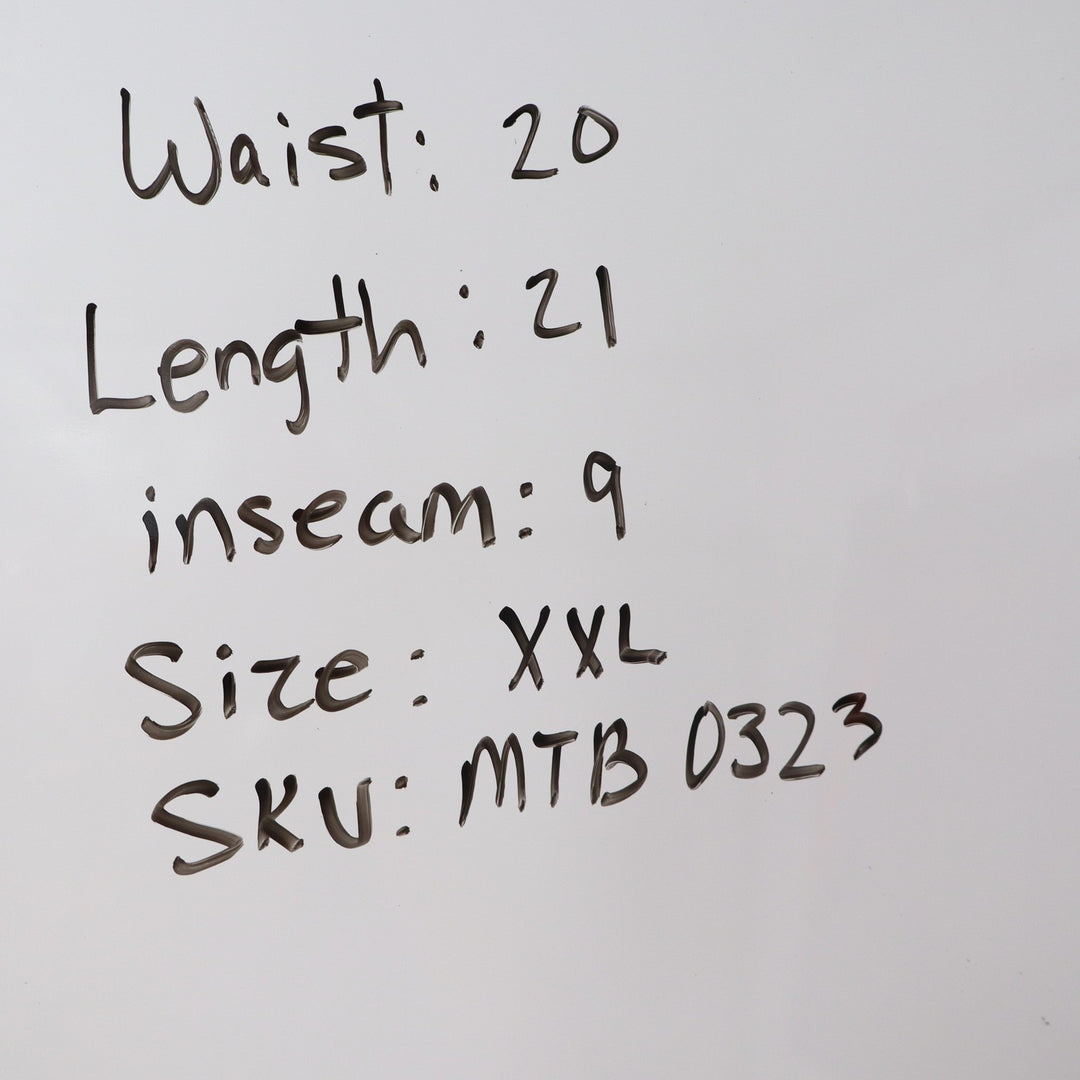 Waist: 20
Length: 21
inseam: 9
Size: XXL
SKU: MTB 0323